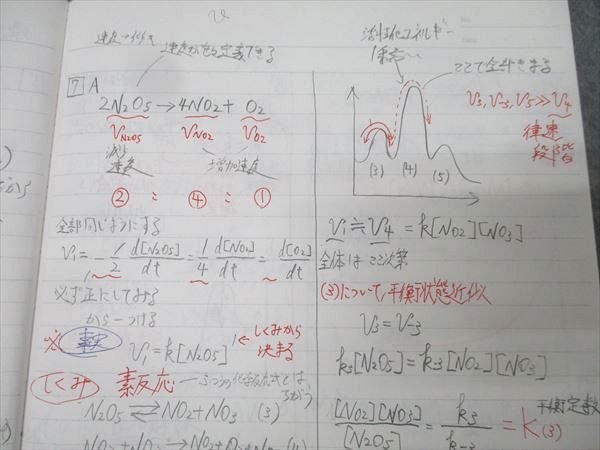 速度
速度から定義できる
7 A
2N₂O₅ → 4NO₂ + O₂
V_N₂O₅ V_NO₂ V_O₂
減少速度 増加速度
② : ④ : ①
全部同じようにする
V₁ = -1/2 d[N₂O₅]/dt = 1/4 d[NO₂]/dt = d[O₂]/dt
必ず正にしてみる
から一つける
※ 事実
V₁ = k[N₂O₅] しくみから決まる
しくみ 素反応
N₂O₅ ⇄ NO₂ + NO₃ (3)
活性化エネルギー
ここで全体きまる
V₃, V₋₃, V₅ ≫ V₄
律速段階
(3) (4) (5)
V₁ ≒ V₄ = k[NO₂][NO₃]
全体はここ次第
(3)について, 平衡状態近似
V₃ = V₋₃
k₃[N₂O₅] = k₋₃[NO₂][NO₃]
[NO₂][NO₃]/[N₂O₅] = k₃/k₋₃ = K(3)
平衡定数